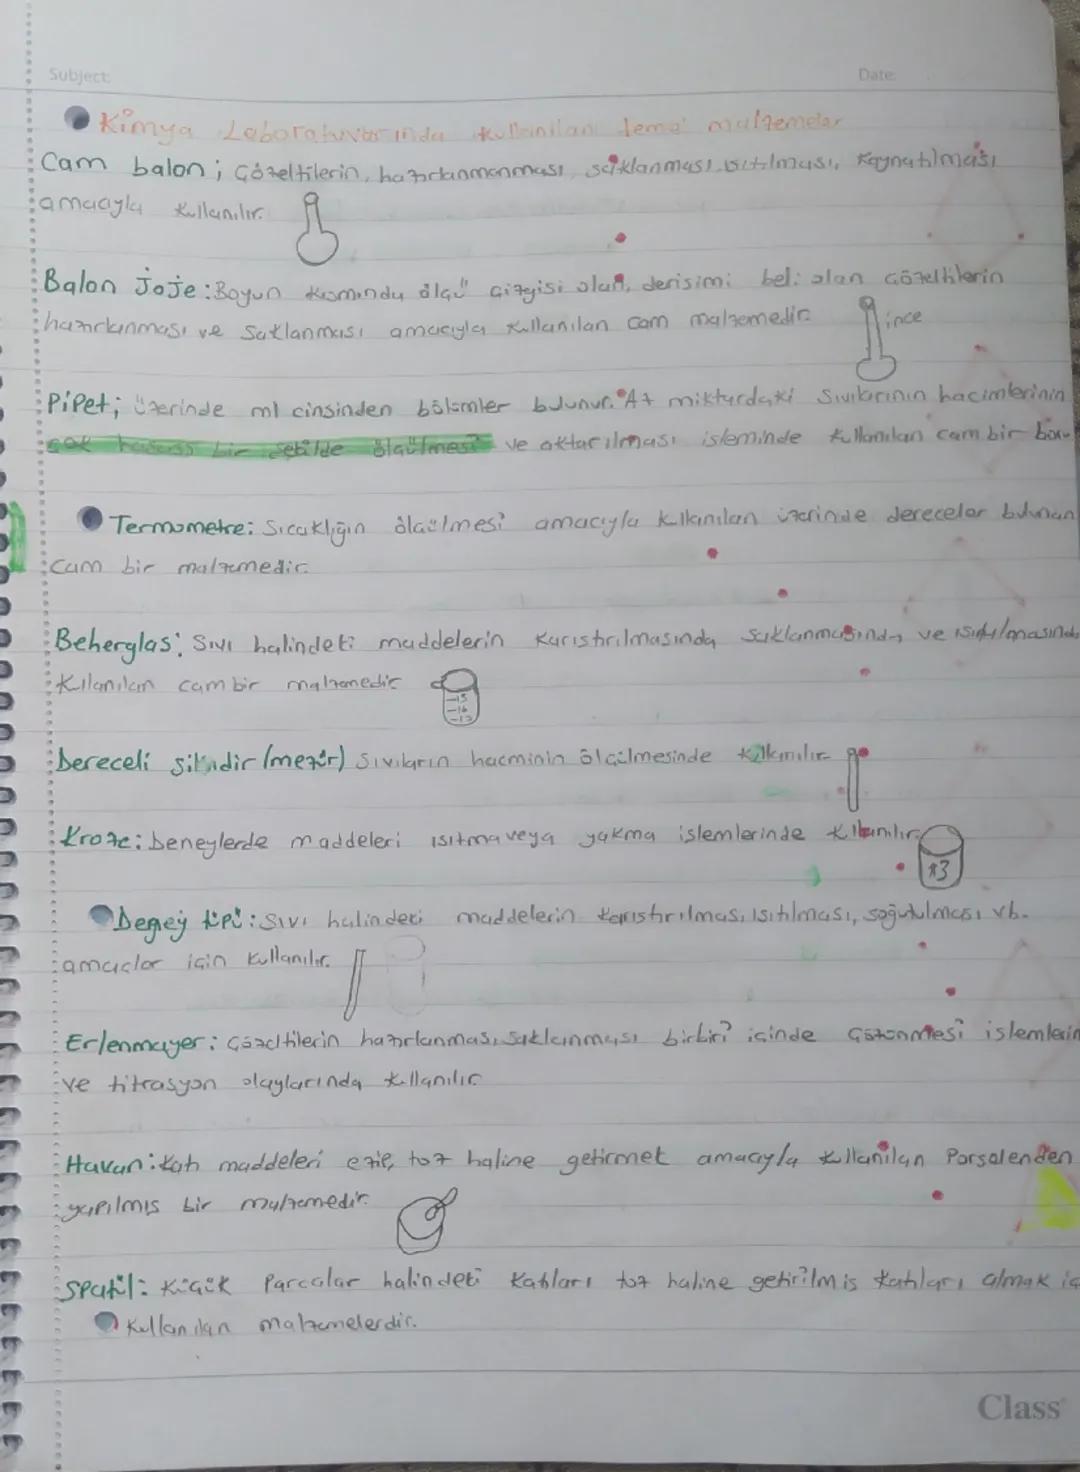 Subject:
Date:
Kimya Laboratuvarında kullanılan temel malzemeler
Cam balon; Çözeltilerin, hazırlanmanması, saklanması, ısıtılması, Kaynatılması
amacıyla kullanılır.
Balon joje: Boyun kısmında ölçü çizgisi olan, derişimi beli olan çözeltilerin
hazırlanması ve Saklanması amacıyla kullanılan cam malzemedir.
ince
Pipet; üzerinde ml cinsinden bölümler bulunur. Az miktardaki sıvılarının hacimlerinin
çok hassas bir şekilde ölçülmesi ve aktarılması işleminde kullanılan cam bir boru
Termometre: Sıcaklığın ölçülmesi amacıyla kullanılan üzerinde dereceler bulunan
cam bir malzemedir.
Beherglas: Sıvı halindeki maddelerin karıştırılmasında saklanmasında ve ısıtılmasında
kullanılan cam bir malzemedir
-15
-16
-17
Dereceli silindir (mezür) Sıvıların hacminin ölçülmesinde kullanılır
Kroze: Deneylerde maddeleri ısıtma veya yakma işlemlerinde kullanılır.
Deney tüpü: Sıvı halindeki maddelerin karıştırılması, ısıtılması, soğutulması vb.
amaçlar için kullanılır.
Erlenmayer: Çözeltilerin hazırlanması, saklanması birbiri içinde çözünmesi işlemlerin
ve titrasyon olaylarında kullanılır
Havan: Katı maddeleri ezip, toz haline getirmek amacıyla kullanılan Porsalenden
yapılmış bir malzemedir.
Spatül: Küçük Parçalar halindeki katıları toz haline getirilmiş katıları almak iç
kullanılan malzemelerdir.
Class